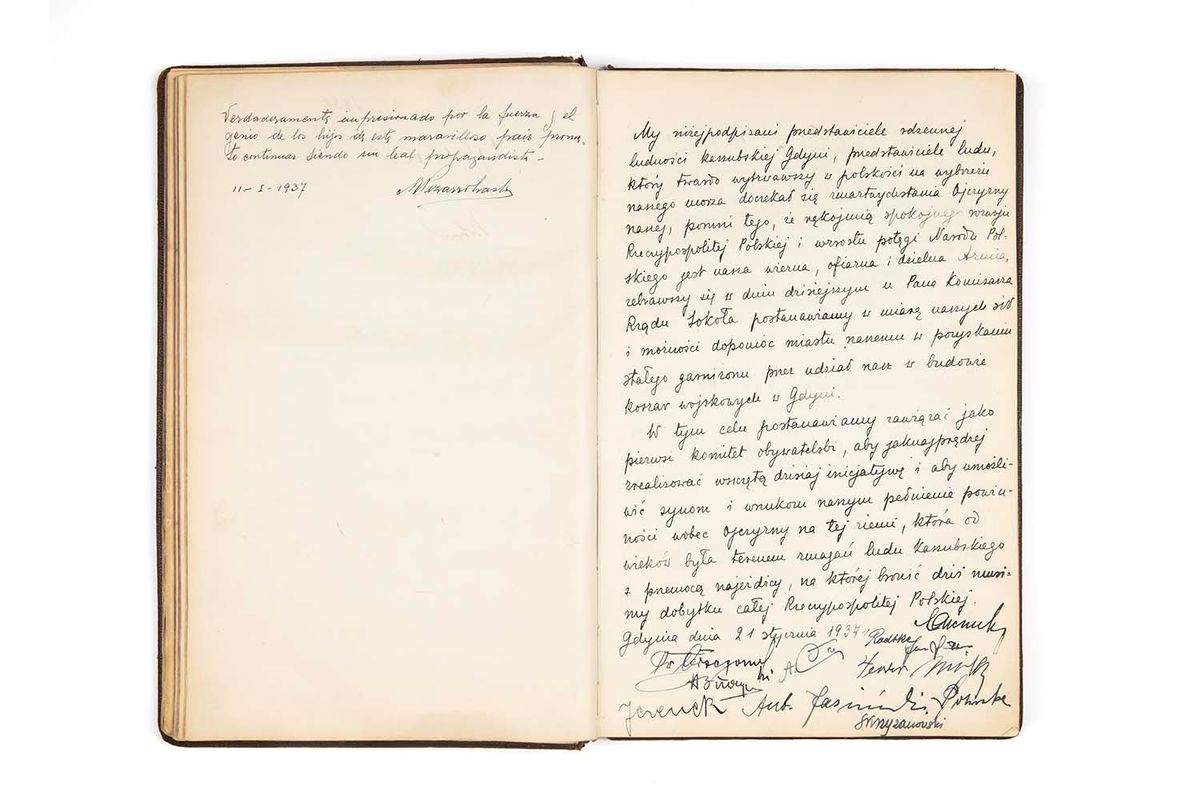 Verdaderamente impresionado por la fuerza y el
genio de los hijos de este maravilloso pais prome-
to continuar siendo un leal propagandista –
11-I-1937
My niżejpodpisani przedstawiciele rdzennej
ludności kaszubskiej Gdyni, przedstawiciele ludu,
który twardo wytrwawszy w polskości na wybrzeżu
naszego morza doczekał się zmartwychwstania Ojczyzny
naszej, pomni tego, że rękojmią spokojnego rozwoju
Rzeczypospolitej Polskiej i wzrostu potęgi Narodu Pol-
skiego jest nasza wierna, ofiarna i dzielna Armia,
zebrawszy się w dniu dzisiejszym u Pana Komisarza
Rządu Sokoła postanawiamy w miarę naszych sił
i możności dopomóc miastu naszemu w pozyskaniu
stałego garnizonu przez udział nasz w budowie
koszar wojskowych w Gdyni.
W tym celu postanawiamy zawiązać jako
pierwsi komitet obywatelski, aby jaknajprędzej
zrealizować wszczętą dzisiaj inicjatywę i aby umożli-
wić synom i wnukom naszym pełnienie powin-
ności wobec Ojczyzny na tej ziemi, która od
wieków była terenem zmagań ludu kaszubskiego
z przemocą najeźdźcy, na której bronić dziś musi-
my dobytku całej Rzeczypospolitej Polskiej.
Gdynia dnia 21 stycznia 1937
Radtke
Dr
Jan
Teodor
A.
Ant. Jasiński
Skrzyżanowski